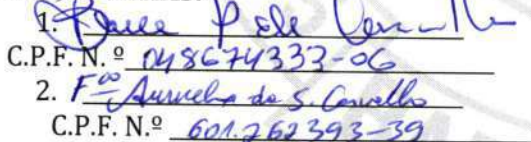 1.
C.P.F. N. º 048674333-06
2. Fᶜᵒ Auricelio de S. Carvalho
C.P.F. N.º 601.262393-39